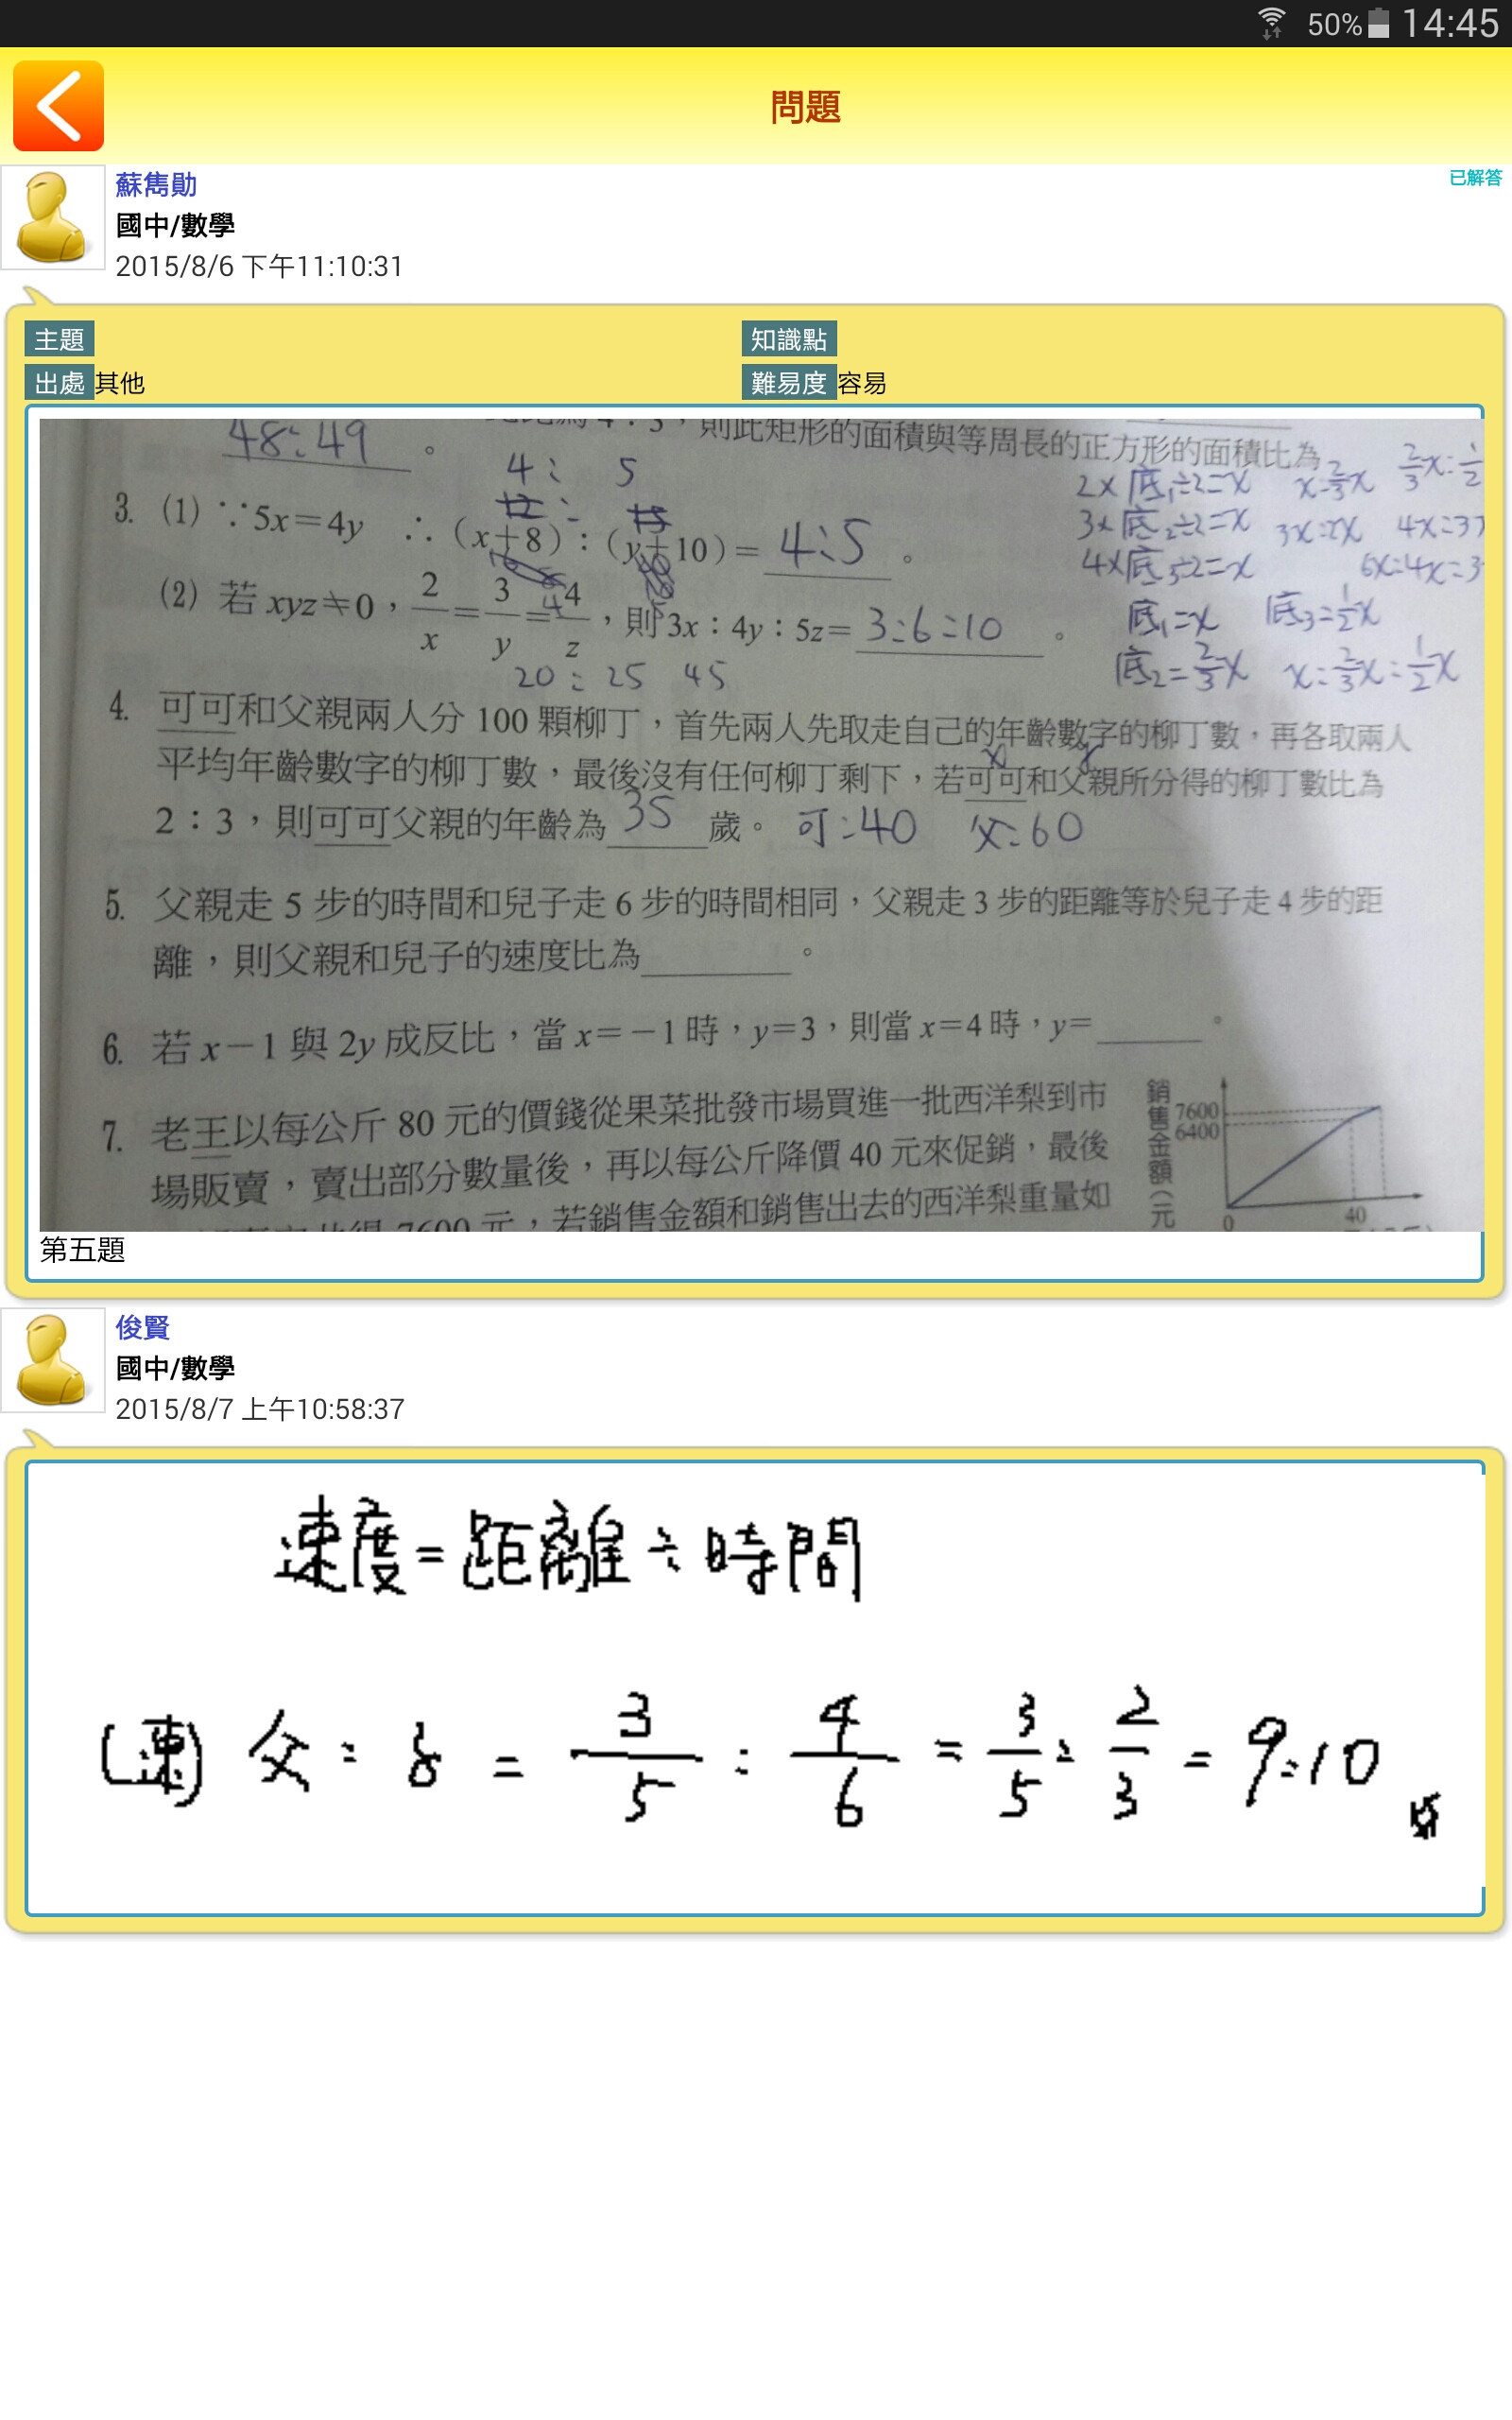 50% 14:45
問題
蘇雋勛
已解答
國中/數學
2015/8/6 下午11:10:31
主題
知識點
出處 其他
難易度 容易
48:49 。
4:3，則此矩形的面積與等周長的正方形的面積比為
4: 5
3. (1) ∵5x=4y ∴(x+8):(y+10)= 4:5 。
(2) 若 xyz≠0，2/x=3/y=4/z，則 3x:4y:5z= 3:6:10 。
2×底₁÷2=x x:2/3x 2/3x:1/2
3×底₂÷2=x 3x:2x 4x:3x
4×底₃÷2=x 6x:4x:3
底₁=x 底₃=1/2x
底₂=2/3x x:2/3x:1/2x
20: 25 45
4. 可可和父親兩人分 100 顆柳丁，首先兩人先取走自己的年齡數字的柳丁數，再各取兩人
平均年齡數字的柳丁數，最後沒有任何柳丁剩下，若可可和父親所分得的柳丁數比為
2:3，則可可父親的年齡為 35 歲。 可:40 父:60
5. 父親走 5 步的時間和兒子走 6 步的時間相同，父親走 3 步的距離等於兒子走 4 步的距
離，則父親和兒子的速度比為 。
6. 若 x-1 與 2y 成反比，當 x=-1 時，y=3，則當 x=4 時，y= 。
7. 老王以每公斤 80 元的價錢從果菜批發市場買進一批西洋梨到市
場販賣，賣出部分數量後，再以每公斤降價 40 元來促銷，最後
7600 元，若銷售金額和銷售出去的西洋梨重量如
銷售金額(元
7600
6400
0 40
第五題
俊賢
國中/數學
2015/8/7 上午10:58:37
速度=距離÷時間
(速) 父:子 = 3/5 : 4/6 = 3/5 : 2/3 = 9:10